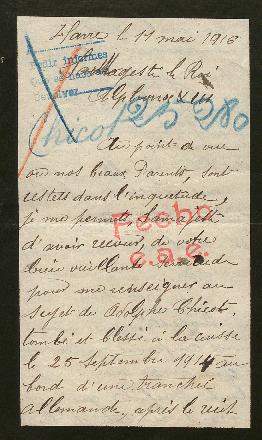 Havre le 11 mai 1916
Pedir informes
Majesté le Roi
Alphonse XIII
Chicot 25 280
Au point de vue
ou nos beaux Parents, sont
restés dans l'inquiétude,
je me permets, Majesté
d'avoir recour, de votre
bien veillante
Hecho
c.a.e.
pour me renseigner au
sujet de Adolphe Chicot,
tombé et blessé à la cuisse
le 25 septembre 1914 au
bord d'une tranchée
allemande, après le récit